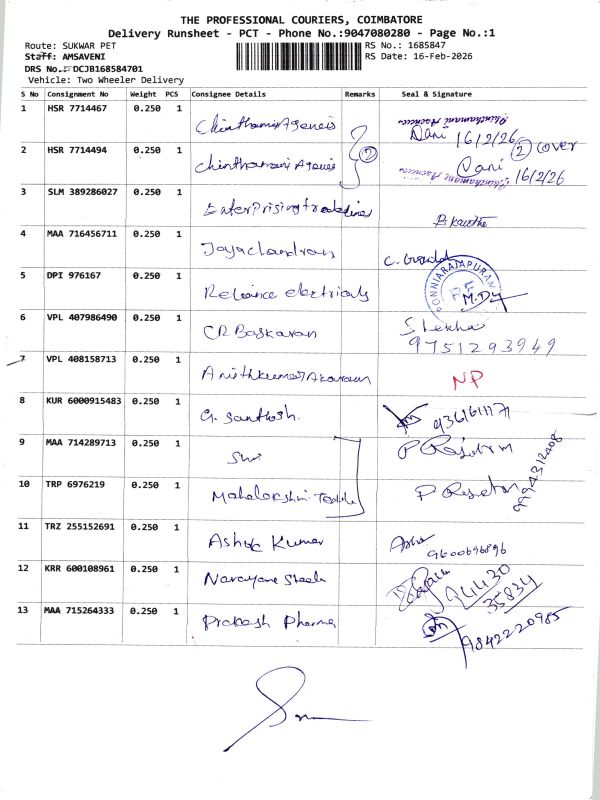 THE PROFESSIONAL COURIERS, COIMBATORE
Delivery Runsheet - PCT - Phone No.:9047080280 - Page No.:1
Route: SUKWAR PET
Staff: AMSAVENI
DRS No.: DCJB168584701
Vehicle: Two Wheeler Delivery
RS No.: 1685847
RS Date: 16-Feb-2026
S No Consignment No Weight PCS Consignee Details Remarks Seal & Signature
1 HSR 7714467 0.250 1 Chinthamani Agencies Dani 16/2/26
2 HSR 7714494 0.250 1 Chinthamani Agencies 2 2 cover Dani 16/2/26
3 SLM 389286027 0.250 1 Enterprising
4 MAA 716456711 0.250 1 Jayachandran
5 DPI 976167 0.250 1 Reliance electricals PONNIARAJAPURAM
6 VPL 407986490 0.250 1 CR Baskaran S lekha
9751293949
7 VPL 408158713 0.250 1 NP
8 KUR 6000915483 0.250 1 G. Santhosh.
9 MAA 714289713 0.250 1 Shri
10 TRP 6976219 0.250 1 Mahalakshmi Textile 9994312408
11 TRZ 255152691 0.250 1 Ashok Kumar
9600696896
12 KRR 600108961 0.250 1 Narayana Steels
94430
35834
13 MAA 715264333 0.250 1 Prakash Pharma 9842220985